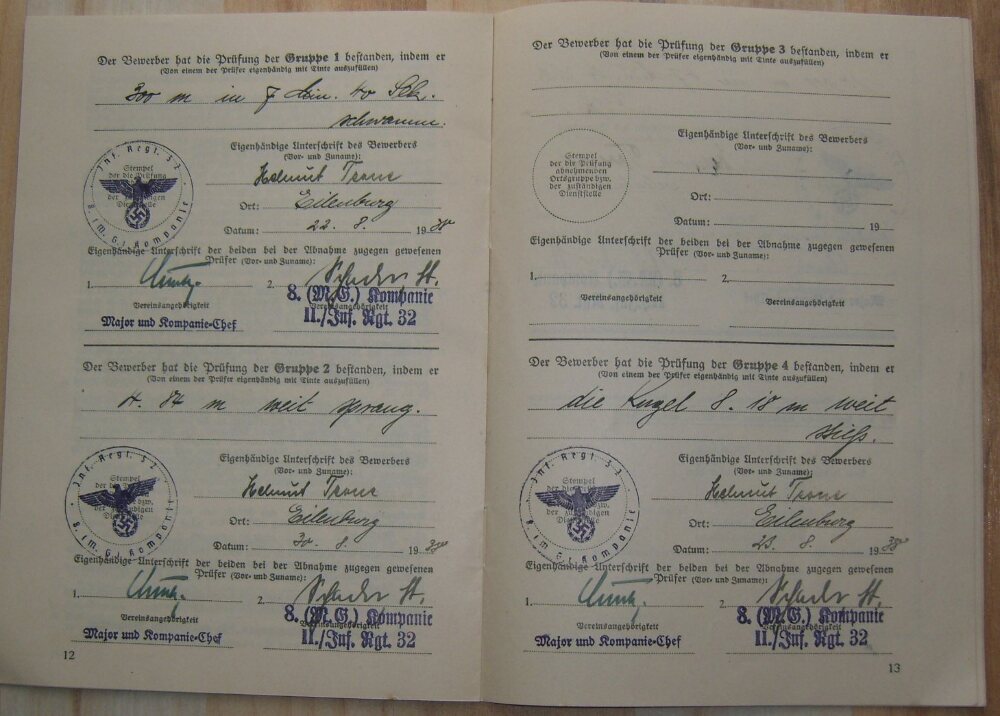 Der Bewerber hat die Prüfung der Gruppe 1 bestanden, indem er
(Von einem der Prüfer eigenhändig mit Tinte auszufüllen)
300 m in 7 Min. 40 Sek.
schwamm.
Eigenhändige Unterschrift des Bewerbers
(Vor- und Zuname):
Inf. Regt. 32
8. (M.G.) Kompanie
Stempel
der die Prüfung
Dienststelle
Helmut
Ort: Eilenburg
Datum: 22. 8. 1938
Eigenhändige Unterschrift der beiden bei der Abnahme zugegen gewesenen
Prüfer (Vor- und Zuname):
1. 2.
8. (M.G.) Kompanie
Vereinsangehörigkeit Vereinsangehörigkeit
Major und Kompanie-Chef II./Inf. Rgt. 32
Der Bewerber hat die Prüfung der Gruppe 2 bestanden, indem er
(Von einem der Prüfer eigenhändig mit Tinte auszufüllen)
4.84 m weit sprang.
Eigenhändige Unterschrift des Bewerbers
(Vor- und Zuname):
Inf. Regt. 32
8. (M.G.) Kompanie
Stempel
Dienststelle
Helmut
Ort: Eilenburg
Datum: 30. 8. 1938
Eigenhändige Unterschrift der beiden bei der Abnahme zugegen gewesenen
Prüfer (Vor- und Zuname):
1. 2.
8. (M.G.) Kompanie
Vereinsangehörigkeit Vereinsangehörigkeit
Major und Kompanie-Chef II./Inf. Rgt. 32
12
Der Bewerber hat die Prüfung der Gruppe 3 bestanden, indem er
(Von einem der Prüfer eigenhändig mit Tinte auszufüllen)
Eigenhändige Unterschrift des Bewerbers
(Vor- und Zuname):
Stempel
der die Prüfung
abnehmenden
Ortsgruppe bzw.
der zuständigen
Dienststelle
Ort:
Datum: 19
Eigenhändige Unterschrift der beiden bei der Abnahme zugegen gewesenen
Prüfer (Vor- und Zuname):
1. 2.
Vereinsangehörigkeit Vereinsangehörigkeit
Der Bewerber hat die Prüfung der Gruppe 4 bestanden, indem er
(Von einem der Prüfer eigenhändig mit Tinte auszufüllen)
die Kugel 8.18 m weit
stieß.
Eigenhändige Unterschrift des Bewerbers
(Vor- und Zuname):
Inf. Regt. 32
8. (M.G.) Kompanie
Stempel
Dienststelle
Helmut
Ort: Eilenburg
Datum: 23. 8. 1938
Eigenhändige Unterschrift der beiden bei der Abnahme zugegen gewesenen
Prüfer (Vor- und Zuname):
1. 2.
8. (M.G.) Kompanie
Vereinsangehörigkeit Vereinsangehörigkeit
Major und Kompanie-Chef II./Inf. Rgt. 32
13